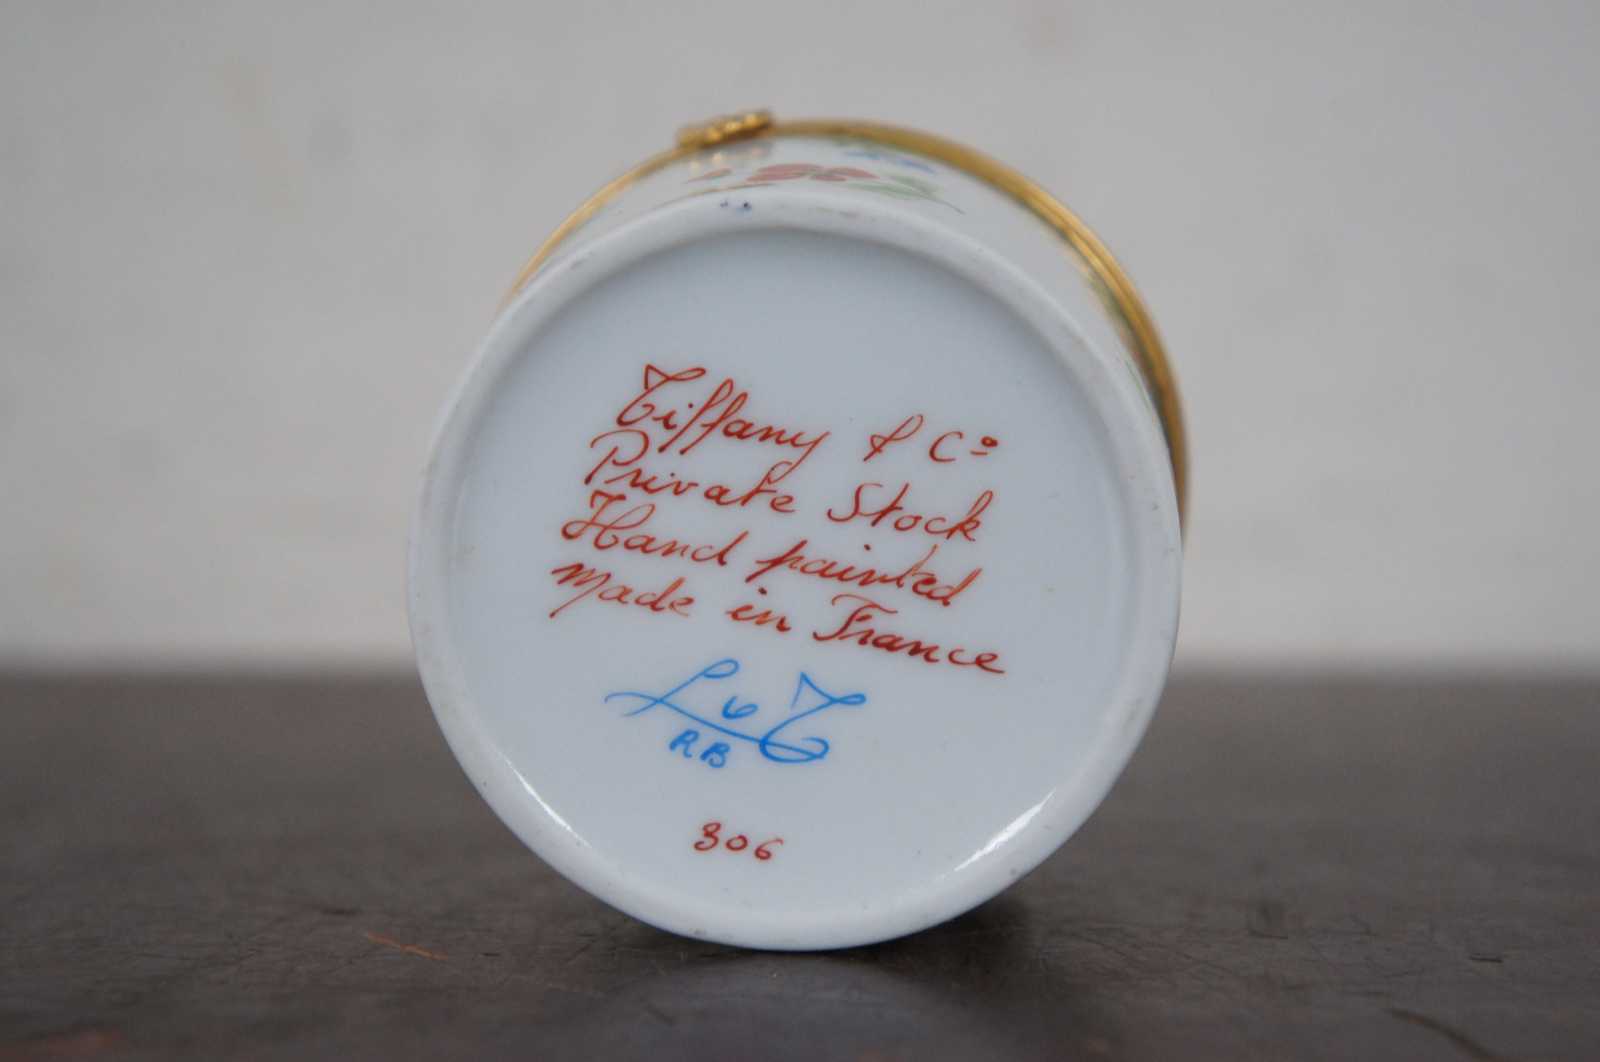 Tiffany & Co
Private Stock
Hand painted
made in France
L T
RB
306